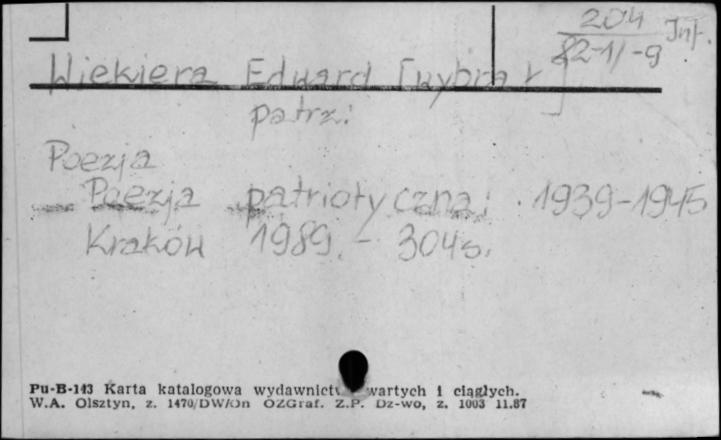 204 Inf.
82-1/-9
Wiekiera Edward [wybrał]
patrz:
Poezja
Poezja patriotyczna; 1939-1945
Kraków 1989. - 304s.
Pu-B-143 Karta katalogowa wydawnictw zwartych i ciągłych.
W.A. Olsztyn, z. 1470/DW/On OZGraf. Z.P. Dz-wo, z. 1003 11.87